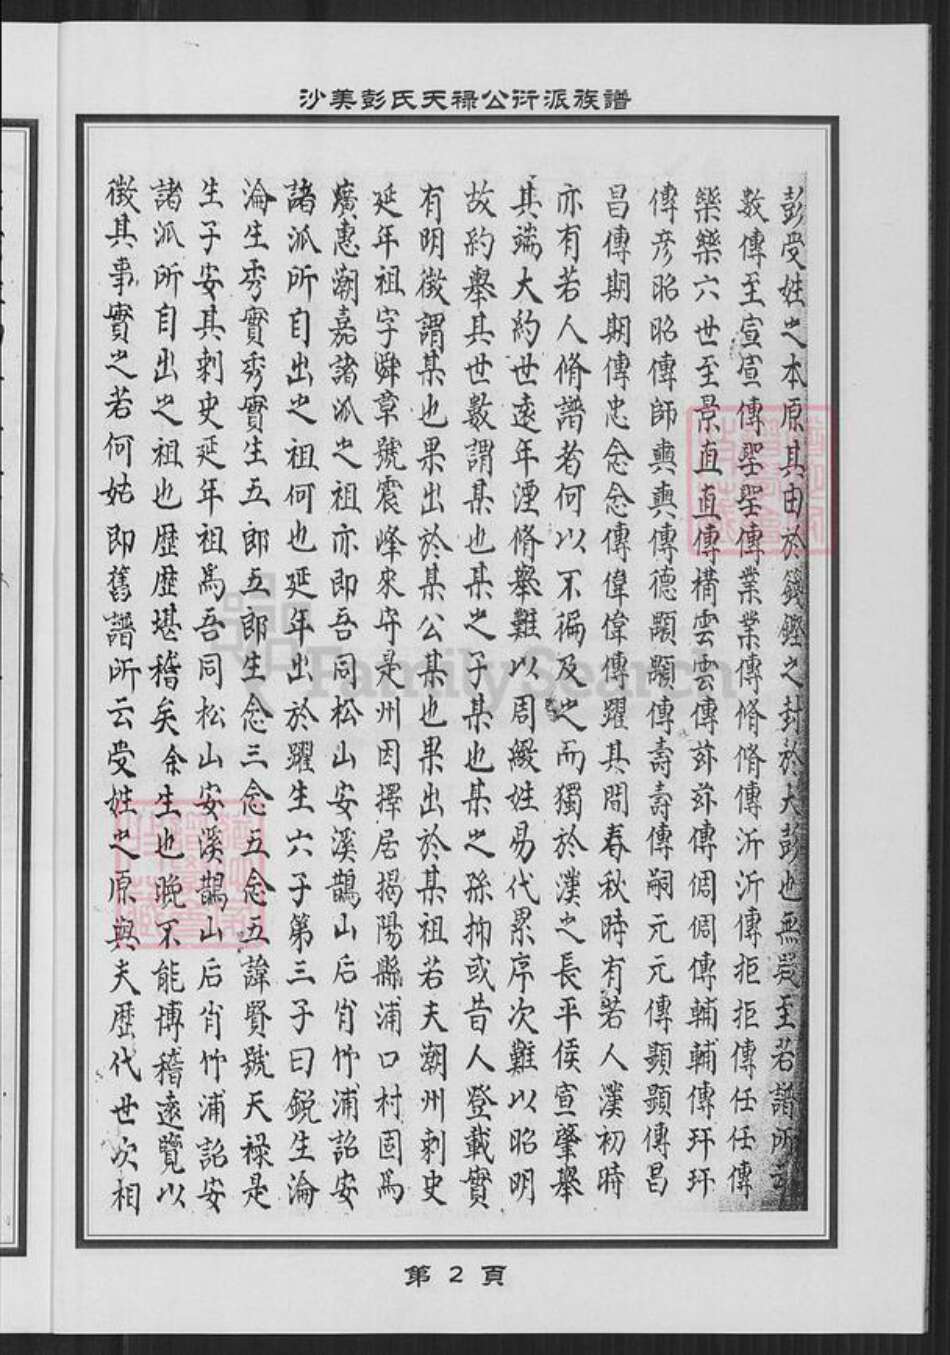 沙美彭氏天祿公衍派族譜
彭受姓之本原其由於籛鏗之封於大彭也無疑至若譜所云
數傳至宣宣傳堅堅傳業業傳脩脩傳沂沂傳拒拒傳任任傳
欒欒六世至景直直傳構雲雲傳茲茲傳倜倜傳輔輔傳玕玕
傳彦昭昭傳師奭奭傳德顒顒傳壽壽傳嗣元元傳顕顕傳昌
昌傳期期傳忠念念傳偉偉傳躍其間春秋時有若人漢初時
亦有若人脩譜者何以不徧及之而獨於漢之長平侯宣肇舉
其端大約世遠年湮脩舉難以周綴姓易代累序次難以昭明
故約舉其世數謂某也某之子某也某之孫抑或昔人登載實
有明徵謂某也果出於某公某也果出於某祖若夫潮州刺史
延年祖字舜章號震峰來守是州因擇居揭陽縣浦口村固為
廣惠潮嘉諸派之祖亦即吾同松山安溪鵲山后肖竹浦詔安
諸派所自出之祖何也延年出於躍生六子第三子曰銳生淪
淪生秀實秀實生五郎五郎生念三念五念五諱賢號天祿是
生子安其刺史延年祖為吾同松山安溪鵲山后肖竹浦詔安
諸派所自出之祖也歷歷堪稽矣余生也晚不能博稽遠覽以
徵其事實之若何姑即舊譜所云受姓之原與夫歷代世次相
第 2 頁
FamilySearch